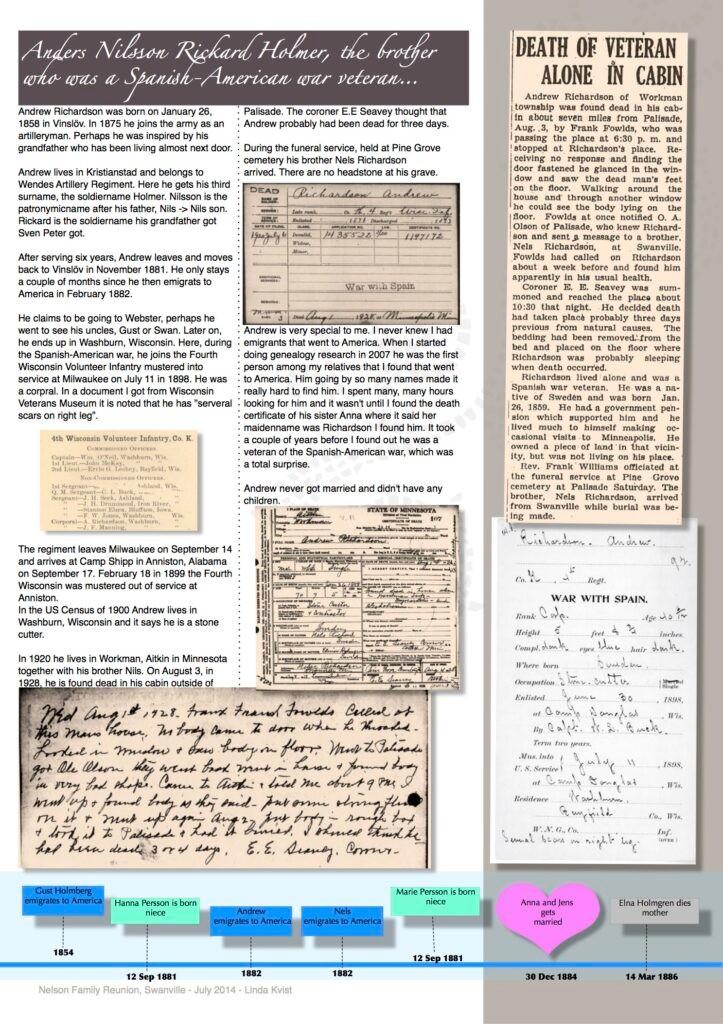 Anders Nilsson Rickard Holmer, the brother
who was a Spanish-American war veteran...
Andrew Richardson was born on January 26,
1858 in Vinslöv. In 1875 he joins the army as an
artilleryman. Perhaps he was inspired by his
grandfather who has been living almost next door.
Andrew lives in Kristianstad and belongs to
Wendes Artillery Regiment. Here he gets his third
surname, the soldiername Holmer. Nilsson is the
patronymicname after his father, Nils -> Nils son.
Rickard is the soldiername his grandfather got
Sven Peter got.
After serving six years, Andrew leaves and moves
back to Vinslöv in November 1881. He only stays
a couple of months since he then emigrates to
America in February 1882.
He claims to be going to Webster, perhaps he
went to see his uncles, Gust or Swan. Later on,
he ends up in Washburn, Wisconsin. Here, during
the Spanish-American war, he joins the Fourth
Wisconsin Volunteer Infantry mustered into
service at Milwaukee on July 11 in 1898. He was
a corpral. In a document I got from Wisconsin
Veterans Museum it is noted that he has "serveral
scars on right leg".
4th Wisconsin Volunteer Infantry, Co. K.
Commissioned Officers.
Captain—Wm. O'Neil, Washburn, Wis.
1st Lieut.—John McKay,
Non-Commissioned Officers.
1st Sergeant— Ashland, Wis.
Q. M. Sergeant—C. L. Buck,
The regiment leaves Milwaukee on September 14
and arrives at Camp Shipp in Anniston, Alabama
on September 17. February 18 in 1899 the Fourth
Wisconsin was mustered out of service at
Anniston.
In the US Census of 1900 Andrew lives in
Washburn, Wisconsin and it says he is a stone
cutter.
In 1920 he lives in Workman, Aitkin in Minnesota
together with his brother Nils. On August 3, in
1928, he is found dead in his cabin outside of
Palisade. The coroner E.E Seavey thought that
Andrew probably had been dead for three days.
During the funeral service, held at Pine Grove
cemetery his brother Nels Richardson
arrived. There are no headstone at his grave.
DEAD
Richardson Andrew
1435522
1197172
War with Spain
Died Aug 1, 1928, at Minneapolis
Andrew is very special to me. I never knew I had
emigrants that went to America. When I started
doing genealogy research in 2007 he was the first
person among my relatives that I found that went
to America. Him going by so many names made it
really hard to find him. I spent many, many hours
looking for him and it wasn't until I found the death
certificate of his sister Anna where it said her
maidenname was Richardson I found him. It took
a couple of years before I found out he was a
veteran of the Spanish-American war, which was
a total surprise.
Andrew never got married and didn't have any
children.
STATE OF MINNESOTA
Wed Aug 1st 1928. Frank Fowlds Called at
this Mans house. No body came to door when he
Looked in window & saw body on floor. Went to Palisade
got Ole Olson they went back went in house & found body
in very bad shape. Came to Aitkin & told me about 9 PM. I
went up & found body as they said
& took it to Palisade & had it buried. I should think he
had been dead 3 or 4 days. E.E. Seavey, Coroner
DEATH OF VETERAN
ALONE IN CABIN
Andrew Richardson of Workman
township was found dead in his cab-
in about seven miles from Palisade,
Aug. 3, by Frank Fowlds, who was
passing the place at 6:30 p. m. and
stopped at Richardson's place. Re-
ceiving no response and finding the
door fastened he glanced in the win-
dow and saw the dead man's feet
on the floor. Walking around the
house and through another window
he could see the body lying on the
floor. Fowlds at once notified O. A.
Olson of Palisade, who knew Richard-
son and sent a message to a brother,
Nels Richardson, at Swanville.
Fowlds had called on Richardson
about a week before and found him
apparently in his usual health.
Coroner E. E. Seavey was sum-
moned and reached the place about
10:30 that night. He decided death
had taken place probably three days
previous from natural causes. The
bedding had been removed from the
bed and placed on the floor where
Richardson was probably sleeping
when death occurred.
Richardson lived alone and was a
Spanish war veteran. He was a na-
tive of Sweden and was born Jan.
26, 1859. He had a government pen-
sion which supported him and he
lived much to himself making oc-
casional visits to Minneapolis. He
owned a piece of land in that vicin-
ity, but was not living on his place.
Rev. Frank Williams officiated at
the funeral service at Pine Grove
cemetery at Palisade Saturday. The
brother, Nels Richardson, arrived
from Swanville while burial was be-
ing made.
Richardson, Andrew.
Co. K 4th Regt.
WAR WITH SPAIN.
Rank Corp. Age
Height 5 feet inches
Compl. dark eyes blue hair dark.
Where born Sweden
Occupation Stone cutter
Enlisted June 30, 1898,
at Camp Douglas, Wis.
By Capt.
Term two years.
Mus. into U. S. Service July 11, 1898,
at Camp Douglas, Wis.
Residence Washburn
Bayfield Co., Wis.
W. N. G., Co. Inf.
Several scars on right leg.
Gust Holmberg
emigrates to America
1854
Hanna Persson is born
niece
12 Sep 1881
Andrew
emigrates to America
1882
Nels
emigrates to America
1882
Marie Persson is born
niece
12 Sep 1881
Anna and Jens
gets
married
30 Dec 1884
Elna Holmgren dies
mother
14 Mar 1886
Nelson Family Reunion, Swanville - July 2014 - Linda Kvist